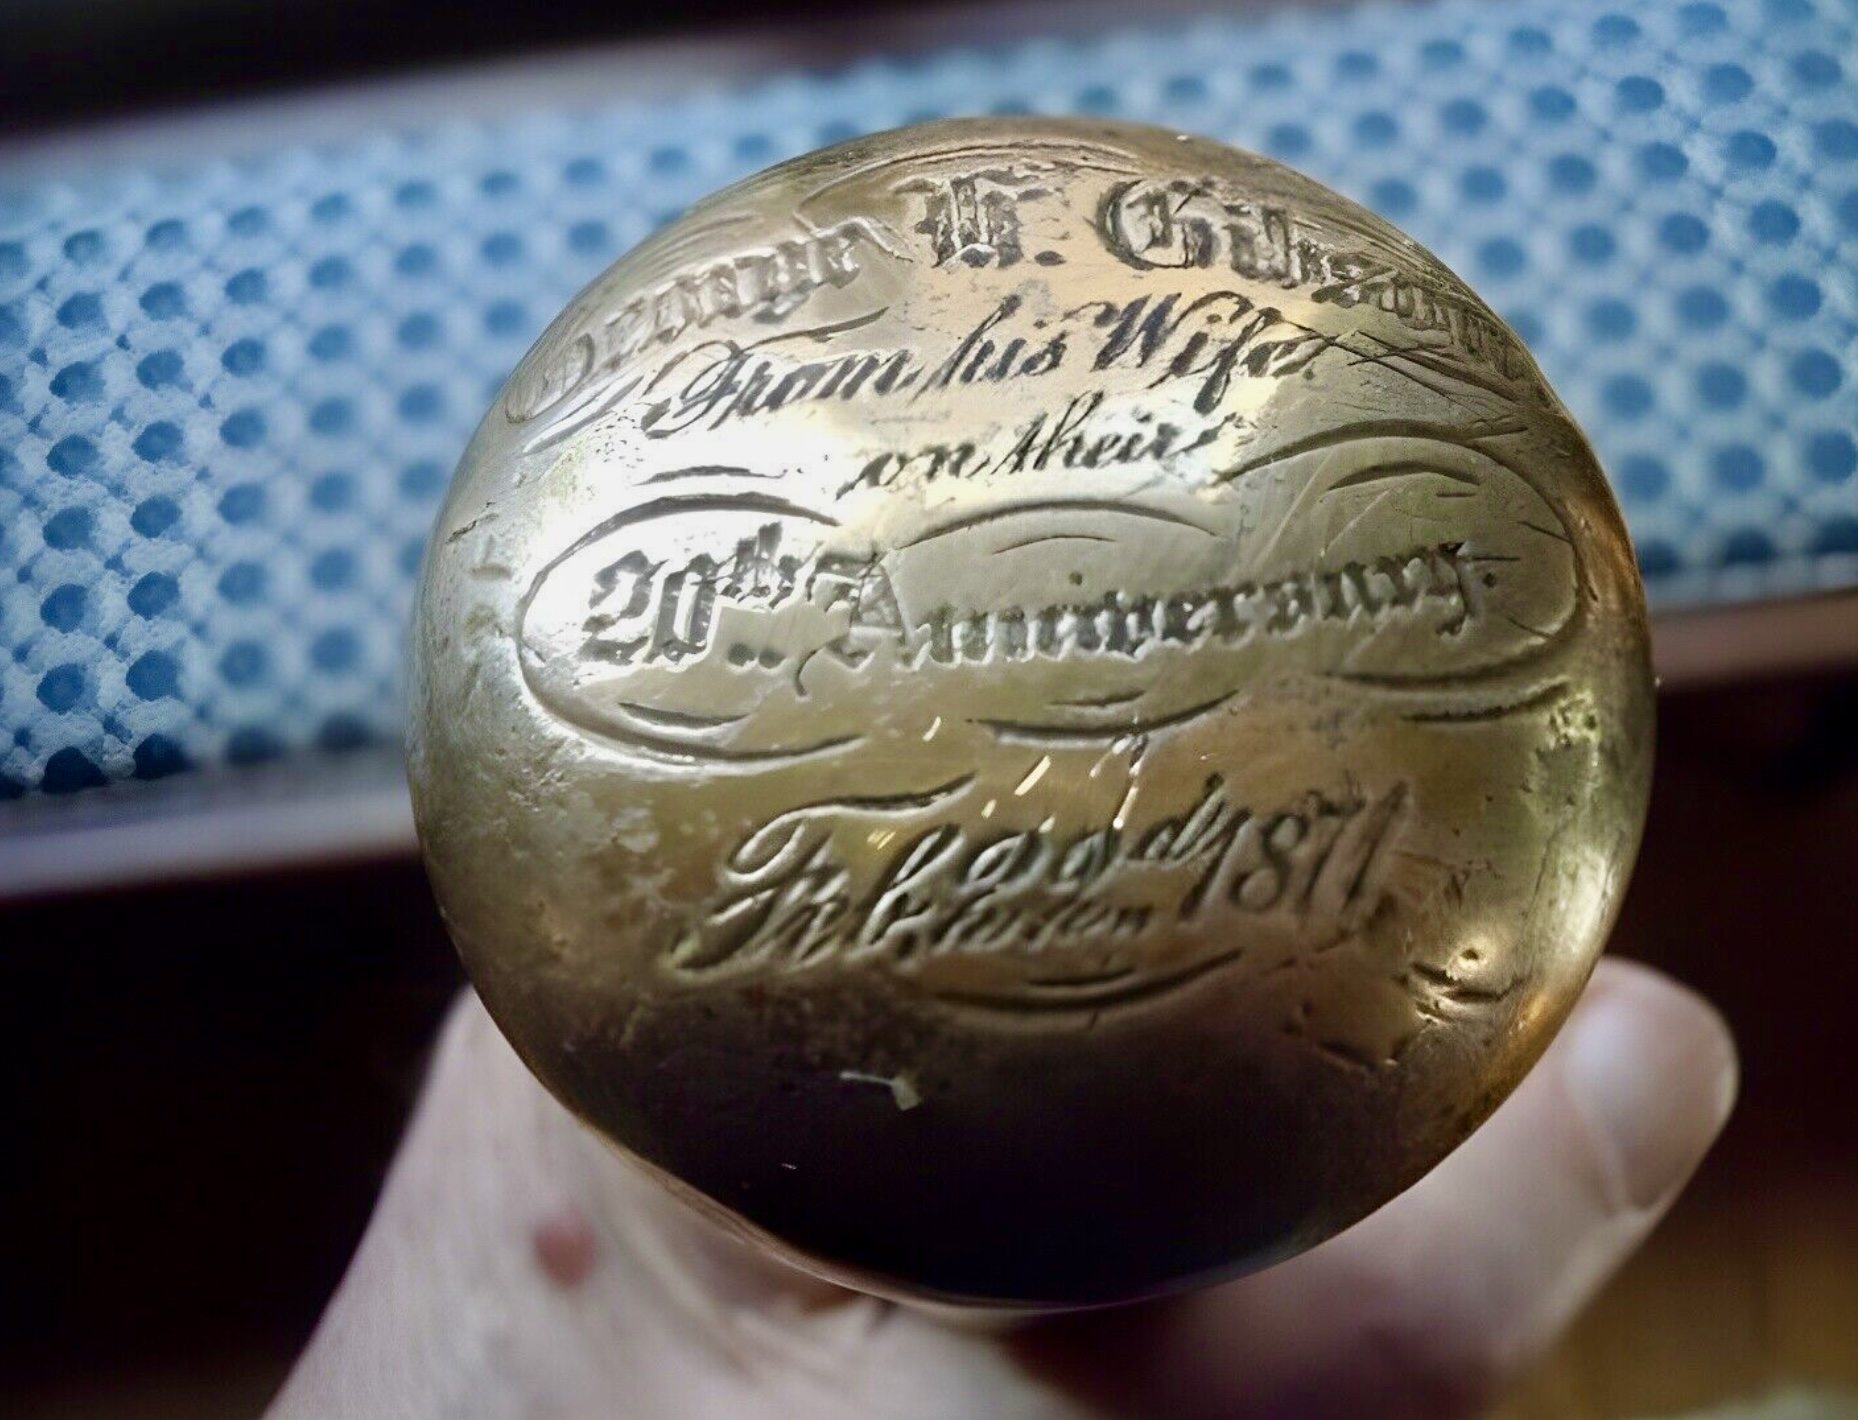 George
From his Wife
on their
20th Anniversary.
Feb. 22d 1871